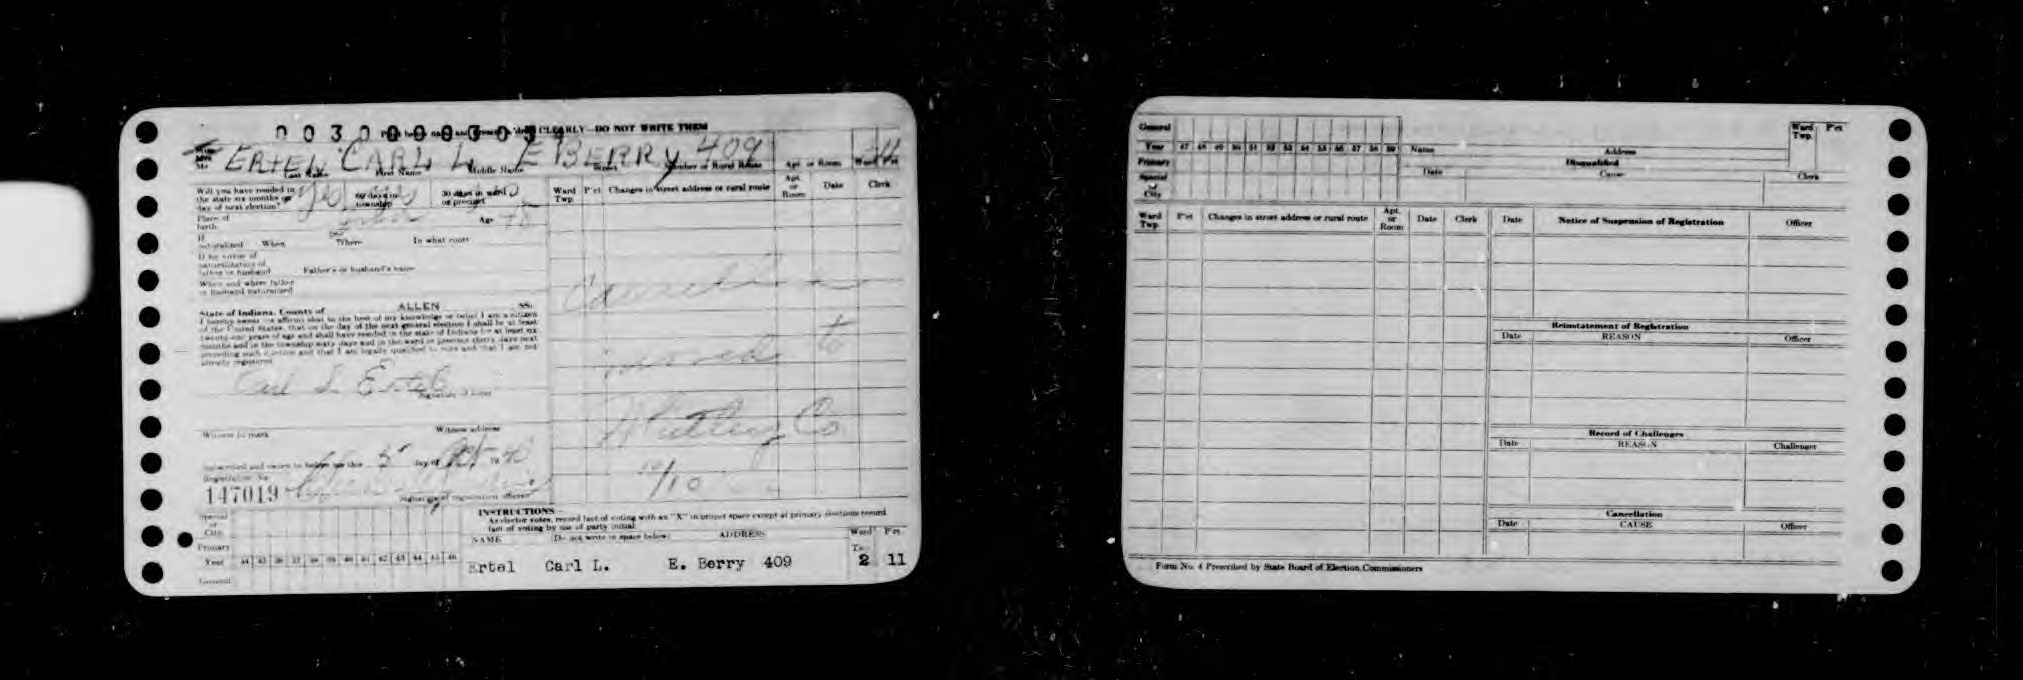 Print last name and present address CLEARLY—DO NOT WRITE THEM
ERTEL CARL L. E BERRY 409
Last Name First Name Middle Name Street Number or Rural Route Apt. or Room Ward Pct
Will you have resided in the state six months on day of next election? Yes 60 days in township 30 days in ward or precinct
Place of birth Age
If naturalized When Where In what court
If by virtue of naturalization of father or husband Father's or husband's name
When and where father or husband naturalized
State of Indiana, County of ALLEN SS:
I hereby swear or affirm that to the best of my knowledge or belief I am a citizen
of the United States, that on the day of the next general election I shall be at least
twenty-one years of age and shall have resided in the state of Indiana for at least six
months and in the township sixty days and in the ward or precinct thirty days next
preceding such election and that I am legally qualified to vote and that I am not
already registered
Carl L Ertel
Signature of voter
Witness to mark Witness address
Subscribed and sworn to before me this 5 day of Oct 19
Registration No.
147019
Signature of registration officer
Ward Twp. P'ct Changes in street address or rural route Apt. or Room Date Clerk
Cancelled
moved to
Whitley Co
10/10
Special or City
Primary
Year
General
INSTRUCTIONS—
As elector votes, record fact of voting with an "X" in proper space except at primary elections record
fact of voting by use of party initial.
NAME (Do not write in space below) ADDRESS Ward Pct
Ertel Carl L. E. Berry 409 2 11
General
Year 47 48 49 50 51 52 53 54 55 56 57 58 59 Name Address Ward Twp. P'ct
Primary Disqualified
Special or City Date Cause Clerk
Ward Twp. P'ct Changes in street address or rural route Apt. or Room Date Clerk
Date Notice of Suspension of Registration Officer
Reinstatement of Registration
Date REASON Officer
Record of Challenges
Date REASON Challenger
Cancellation
Date CAUSE Officer
Form No. 4 Prescribed by State Board of Election Commissioners